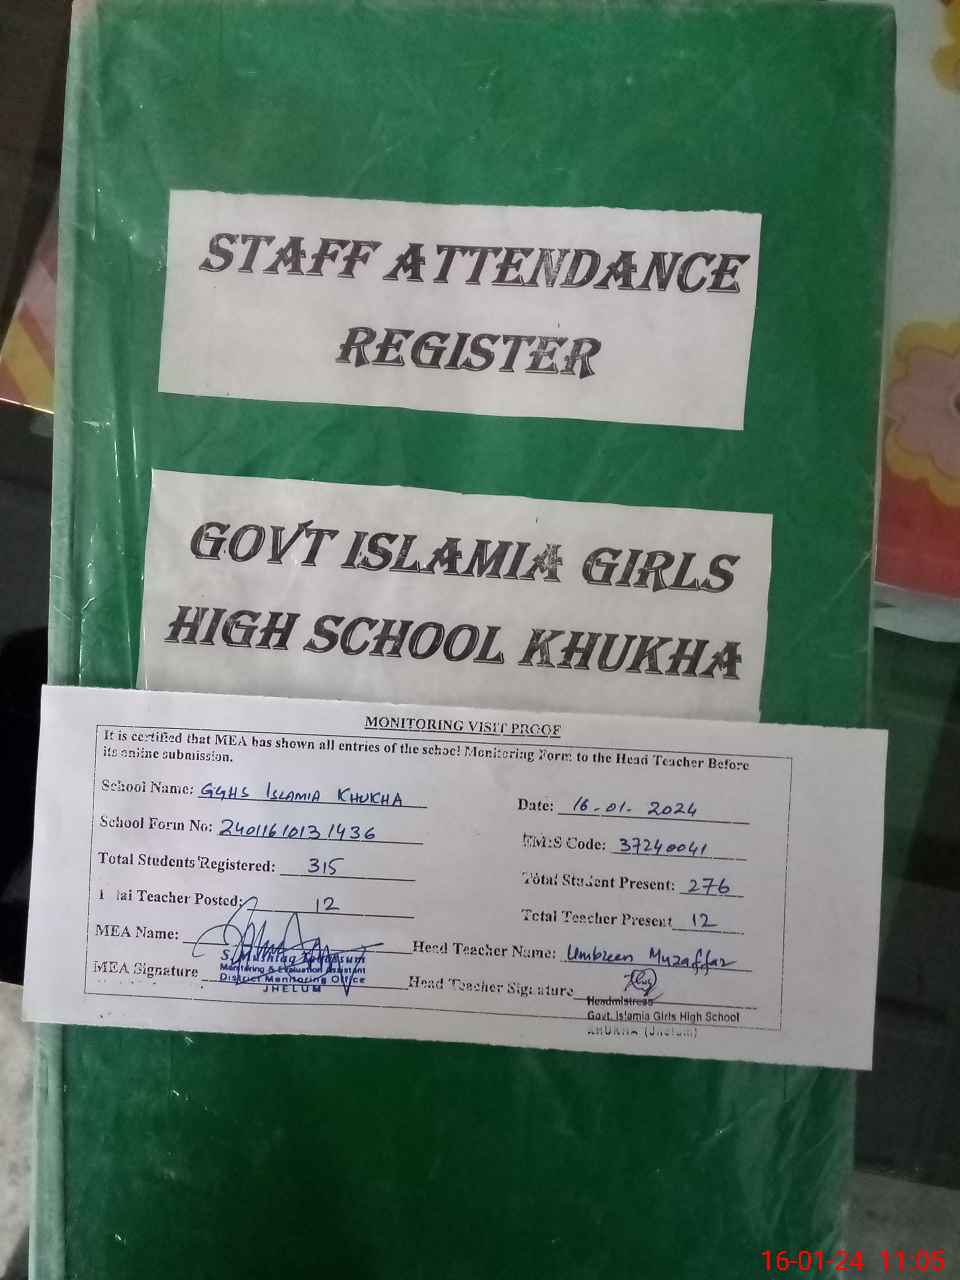 STAFF ATTENDANCE
REGISTER
GOVT ISLAMIA GIRLS
HIGH SCHOOL KHUKHA
MONITORING VISIT PROOF
It is certified that MEA has shown all entries of the school Monitoring Form to the Head Teacher Before
its online submission.
School Name: GGHS ISLAMIA KHUKHA
Date: 16-01-2024
School Form No: 24011610131436
EMIS Code: 37240041
Total Students Registered: 315
Total Student Present: 276
Total Teacher Posted: 12
Total Teacher Present 12
MEA Name:
Head Teacher Name: Umbreen Muzaffar
S. Mushtaq Tabassum
Monitoring & Evaluation Assistant
MEA Signature
District Monitoring Office
JHELUM
Head Teacher Signature
Headmistress
Govt. Islamia Girls High School
KHUKHA (Jhelum)
16-01-24 11:05